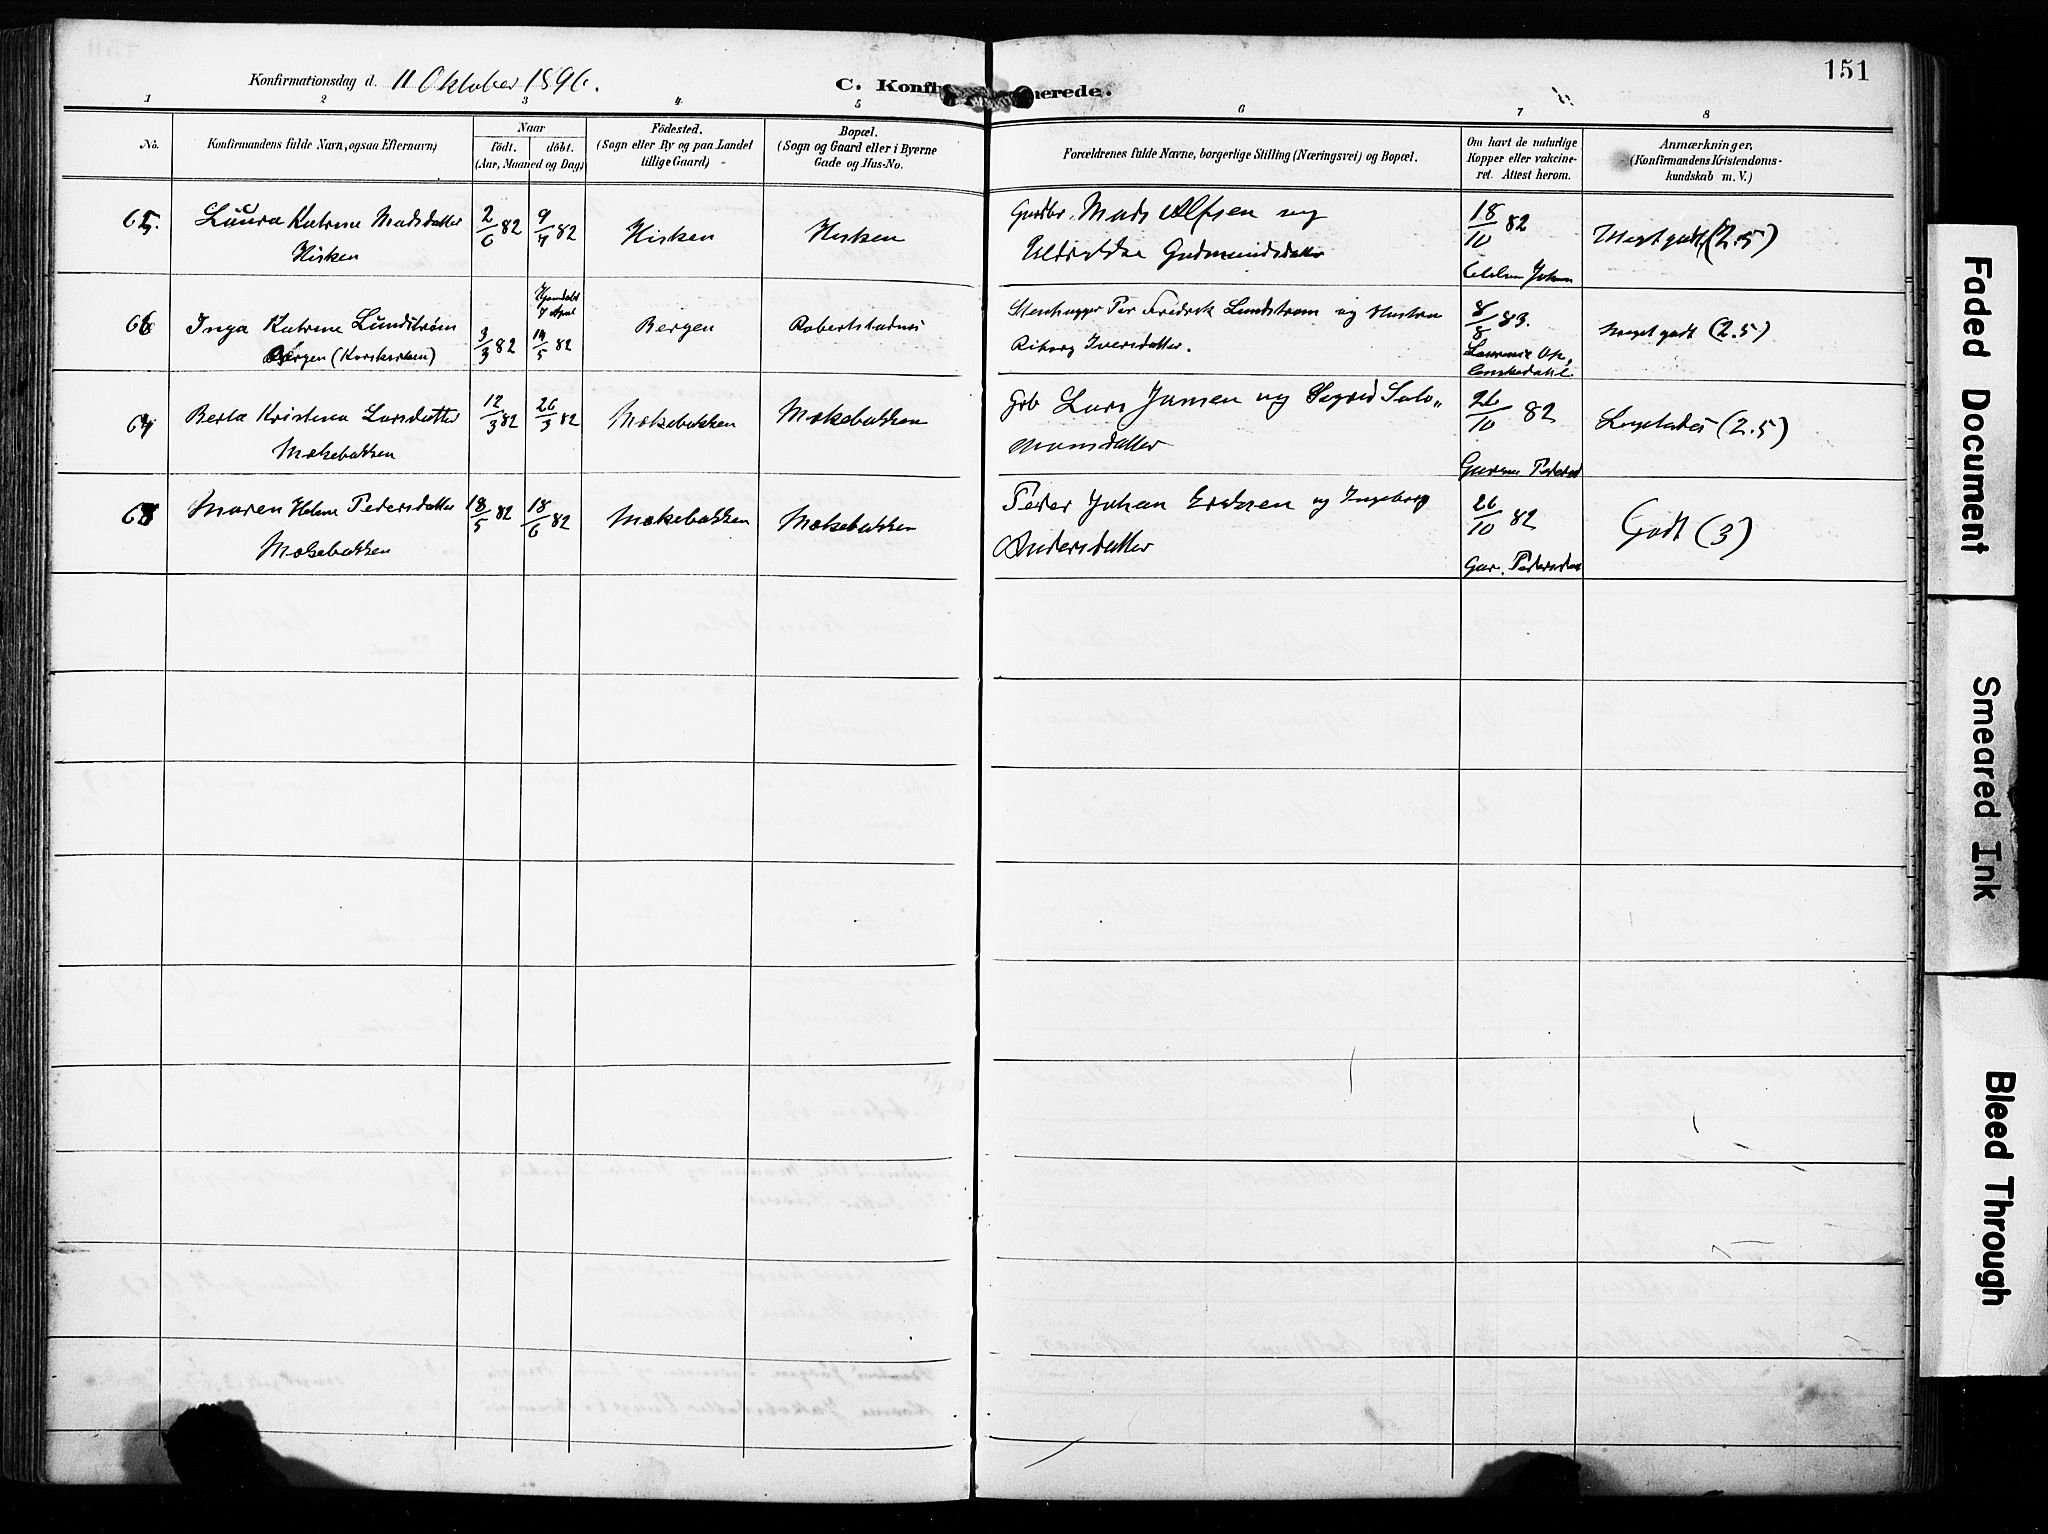 151
Konfirmationsdag d. 11 Oktober 1896.
C. Konfi merede.
1 2 3 4 5 6 7 8
No.
Konfirmandens fulde Navn, ogsaa Efternavn)
Naar
födt. döbt.
(Aar, Maaned og Dag)
Födested.
(Sogn eller By og paa Landet
tillige Gaard)
Bopæl.
(Sogn og Gaard eller i Byerne
Gade og Hus-No.
Forældrenes fulde Navne, borgerlige Stilling (Næringsvei) og Bopæl.
Om havt de naturlige
Kopper eller vakcine-
ret. Attest herom.
Anmærkninger.
(Konfirmandens Kristendoms-
kundskab m. V.)
65. Laura Katrine Madsdatter
Hisken
2/6 82 9/7 82 Hisken Hisken
Gaardbr. Mads Alfsen og
Gudmundsdatter
18/10 82
Johan
Meget godt (2.5)
66 Inga Katrine Lundstrøm
Bergen (Korskirken)
3/3 82
Hjemdøbt
14/5 82 Bergen
Stenhugger Per Fredrik Lundstrøm og Hustru
Riborg Iversdatter.
8/8 83.
Meget godt (2.5)
67 Berta Kristina Larsdatter
Mokebakken
12/3 82 26/3 82 Mokebakken Mokebakken
Grb Lars Jansen og Sigrid Salo„
monsdatter
26/10 82
(2.5)
68 Maren Helene Pedersdatter
Mokebakken
18/5 82 18/6 82 Mokebakken Mokebakken
Peder Johan Eriksen og Ingeborg
Andersdatter
26/10 82
Gur. Pedersdat
Godt (3)
Faded Document
Smeared Ink
Bleed Through